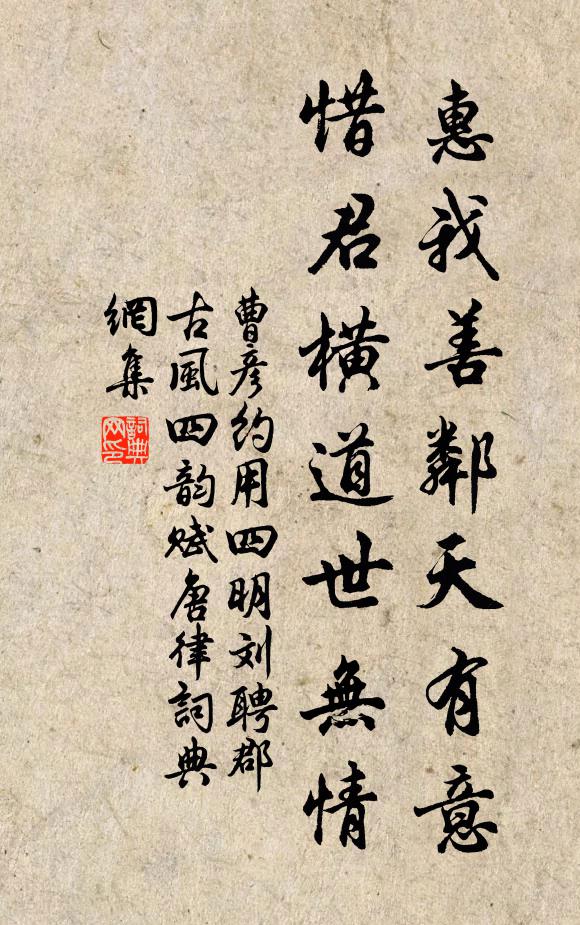 惠我善鄰天有意
惜君橫道世無情
曹彦約用四明刘聘郡
古風四韵賦唐律詞典
網集
詞典
网印